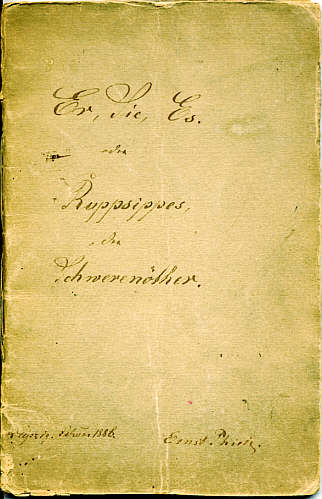 Er, Sie, Es.
oder
Ruppsippes,
der
Schwerenöther.
1886. Ernst